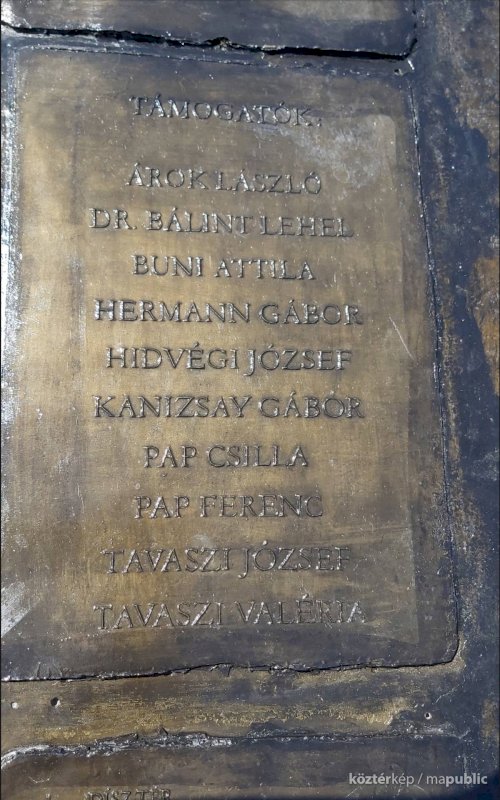 TÁMOGATÓK:
ÁROK LÁSZLÓ
DR. BÁLINT LEHEL
BUNI ATTILA
HERMANN GÁBOR
HIDVÉGI JÓZSEF
KANIZSAY GÁBOR
PAP CSILLA
PAP FERENC
TAVASZI JÓZSEF
TAVASZI VALÉRIA
köztérkép / mapublic